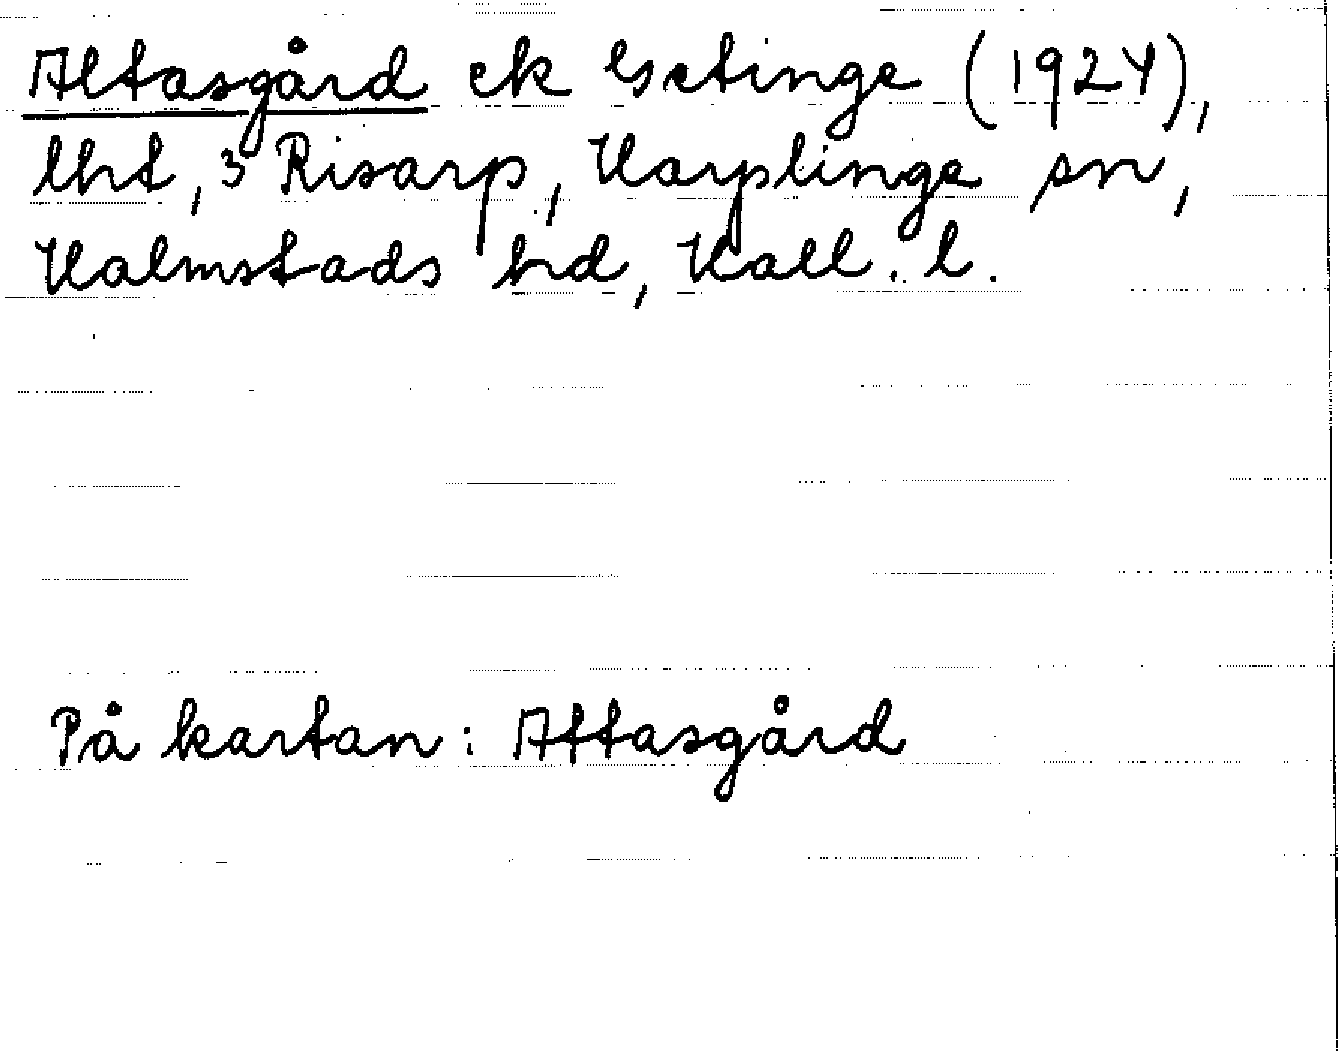 Altasgård ek Getinge (1924),
lht, 3 Risarp, Harplinge sn,
Halmstads hd, Hall. l.
På kartan: Attasgård